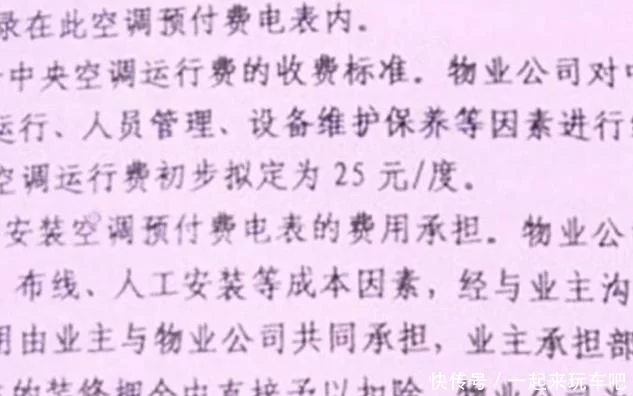 录在此空调预付费电表内。
中央空调运行费的收费标准。物业公司对
运行、人员管理、设备维护保养等因素进行
空调运行费初步拟定为 25 元/度。
安装空调预付费电表的费用承担。物业公
布线、人工安装等成本因素，经与业主沟
用由业主与物业公司共同承担，业主承担部
的装修押金中直接予以扣除。物业公司
快传号／一起来玩车吧